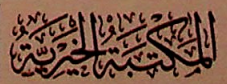 المكتبة الخيرية